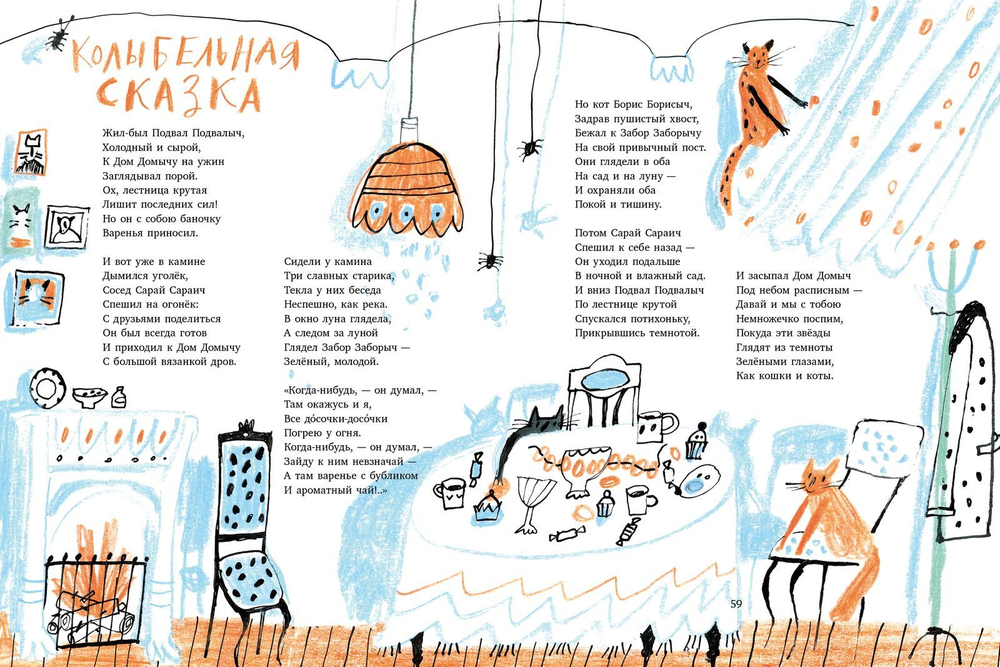 КОЛЫБЕЛЬНАЯ
СКАЗКА
Жил-был Подвал Подвалыч,
Холодный и сырой,
К Дом Домычу на ужин
Заглядывал порой.
Ох, лестница крутая
Лишит последних сил!
Но он с собою баночку
Варенья приносил.
И вот уже в камине
Дымился уголёк,
Сосед Сарай Сараич
Спешил на огонёк:
С друзьями поделиться
Он был всегда готов
И приходил к Дом Домычу
С большой вязанкой дров.
Сидели у камина
Три славных старика,
Текла у них беседа
Неспешно, как река.
В окно луна глядела,
А следом за луной
Глядел Забор Заборыч —
Зелёный, молодой.
«Когда-нибудь, — он думал, —
Там окажусь и я,
Все до́сочки-досо́чки
Погрею у огня.
Когда-нибудь, — он думал, —
Зайду к ним невзначай —
А там варенье с бубликом
И ароматный чай!..»
Но кот Борис Борисыч,
Задрав пушистый хвост,
Бежал к Забор Заборычу
На свой привычный пост.
Они глядели в оба
На сад и на луну —
И охраняли оба
Покой и тишину.
Потом Сарай Сараич
Спешил к себе назад —
Он уходил подальше
В ночной и влажный сад.
И вниз Подвал Подвалыч
По лестнице крутой
Спускался потихоньку,
Прикрывшись темнотой.
И засыпал Дом Домыч
Под небом расписным —
Давай и мы с тобою
Немножечко поспим,
Покуда эти звёзды
Глядят из темноты
Зелёными глазами,
Как кошки и коты.
59